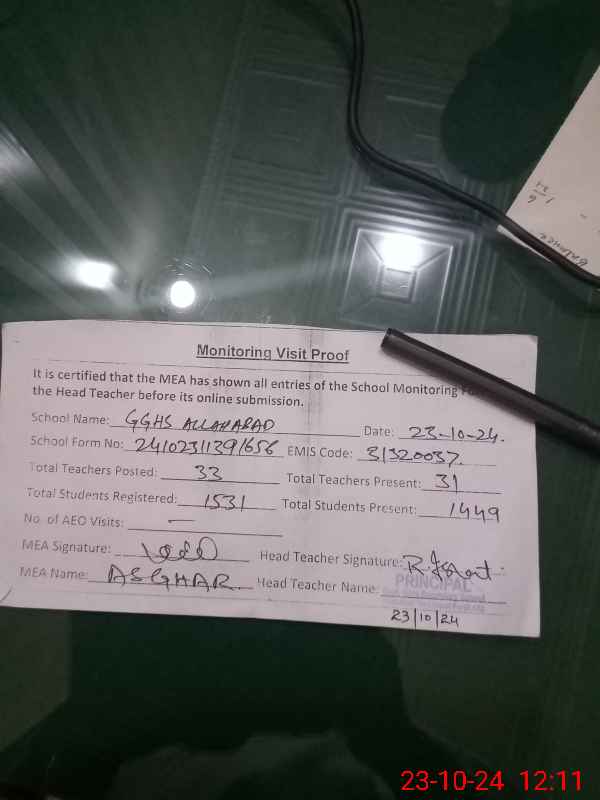 Monitoring Visit Proof
It is certified that the MEA has shown all entries of the School Monitoring
the Head Teacher before its online submission.
School Name: GGHS ALLAHABAD Date: 23-10-24.
School Form No: 24102311391656 EMIS Code: 31320037.
Total Teachers Posted: 33 Total Teachers Present: 31
Total Students Registered: 1531 Total Students Present: 1449
No. of AEO Visits: —
MEA Signature: Head Teacher Signature:
MEA Name: ASGHAR Head Teacher Name: PRINCIPAL
23/10/24
Balance
23-10-24 12:11